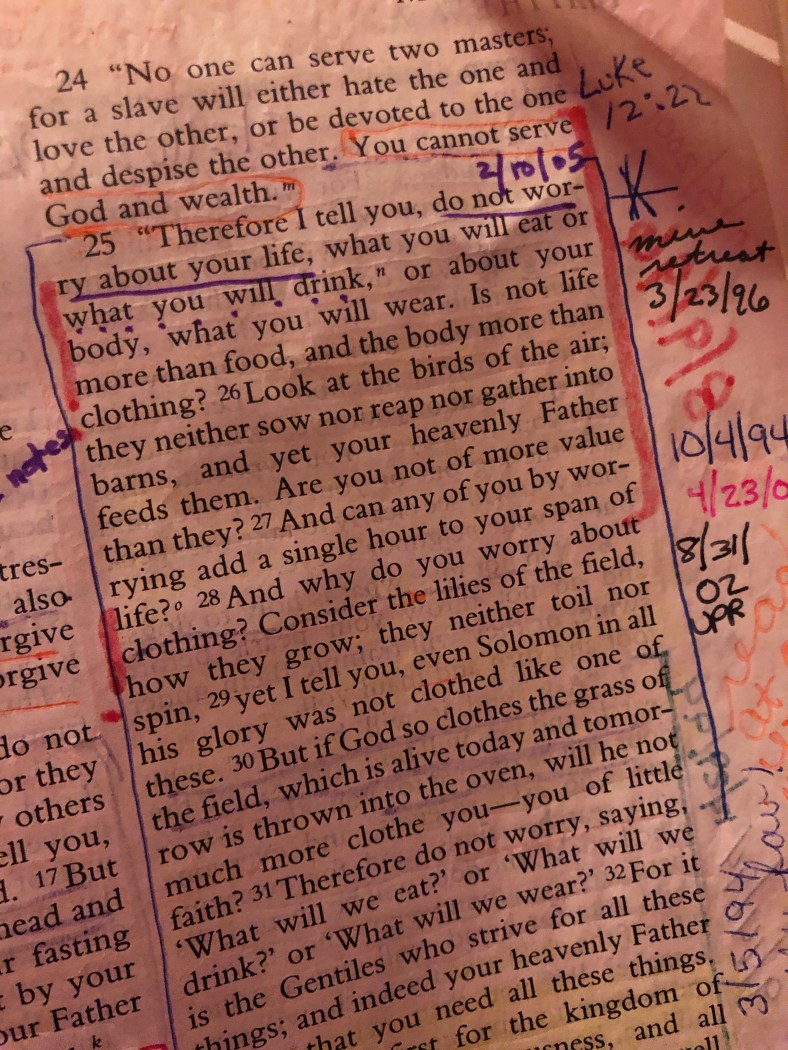 24 “No one can serve two masters;
for a slave will either hate the one and
love the other, or be devoted to the one
and despise the other. You cannot serve
God and wealth.”m
25 “Therefore I tell you, do not wor-
ry about your life, what you will eat or
what you will drink,n or about your
body, what you will wear. Is not life
more than food, and the body more than
clothing? 26 Look at the birds of the air;
they neither sow nor reap nor gather into
barns, and yet your heavenly Father
feeds them. Are you not of more value
than they? 27 And can any of you by wor-
rying add a single hour to your span of
life?o 28 And why do you worry about
clothing? Consider the lilies of the field,
how they grow; they neither toil nor
spin, 29 yet I tell you, even Solomon in all
his glory was not clothed like one of
these. 30 But if God so clothes the grass of
the field, which is alive today and tomor-
row is thrown into the oven, will he not
much more clothe you—you of little
faith? 31 Therefore do not worry, saying,
‘What will we eat?’ or ‘What will we
drink?’ or ‘What will we wear?’ 32 For it
is the Gentiles who strive for all these
things; and indeed your heavenly Father
that you need all these things.
for the kingdom of
and all
Luke
12:22
2/10/05
retreat
3/23/96
10/4/94
4/23/0
8/31/
02
UPR
3/5/94
notes
e
tres-
also
rgive
orgive
do not
or they
others
ell you,
d. 17 But
head and
r fasting
t by your
our Father
k